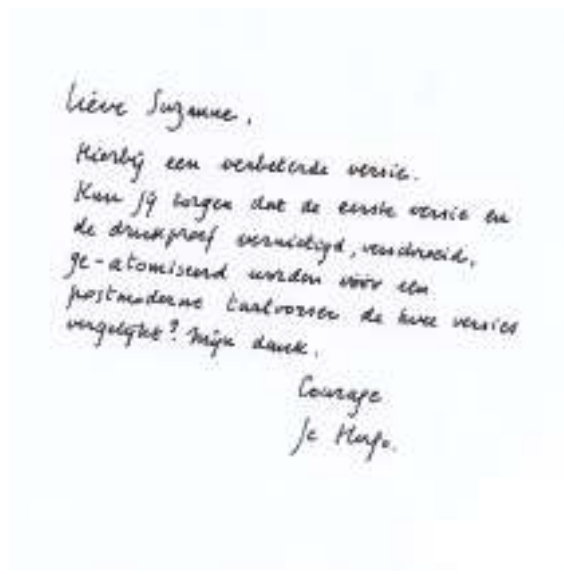 Lieve Suzanne,
Hierbij een verbeterde versie.
Kun jij zorgen dat de eerste versie en
de drukproef vernietigd, verscheurd,
ge-atomiseerd worden vóór een
postmoderne taalvorser de twee versies
vergelijkt? Mijn dank.
Courage
Je Hugo.